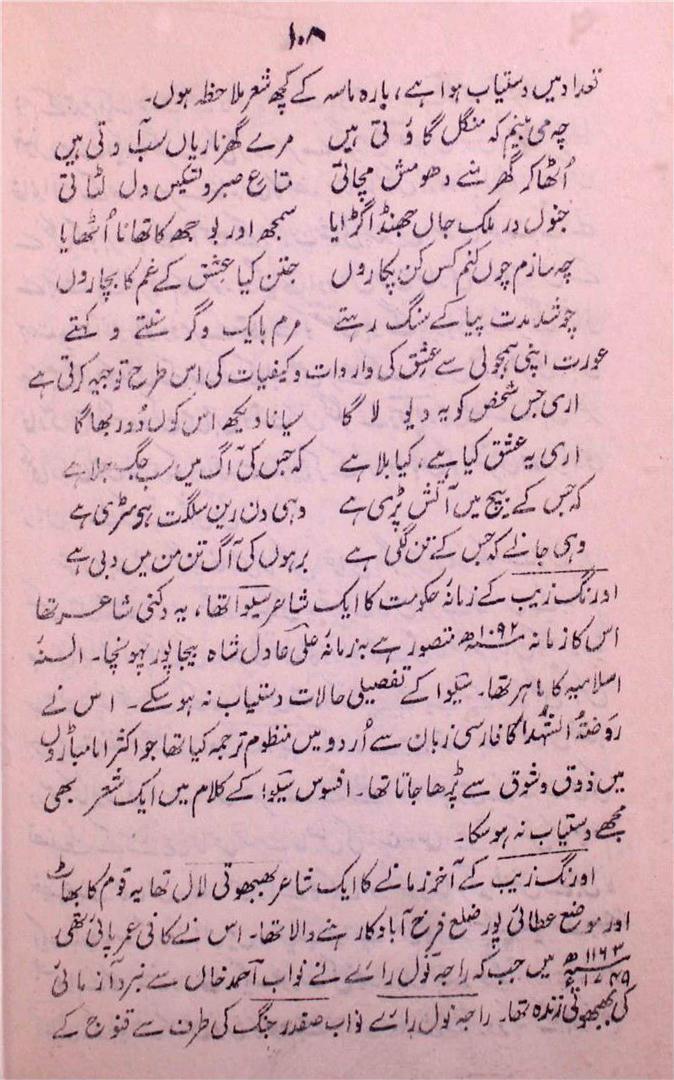 ۱۰۸
تعداد میں دستیاب ہوا ہے، بارہ ماسہ کے کچھ شعر ملاحظہ ہوں۔
چہ می بینم کہ منگل گاؤ تی ہیں مرے گھر ناریاں سب آ وتی ہیں
اُٹھا کر گھر نے دھومش مچائی متاع صبر و تسکیں دل لٹائی
جنوں در ملک جاں جھنڈا گڑایا سمجھ اور بوجھ کا تھانا اُٹھایا
چہ سازم چوں کنم کس کن پکاروں جتن کیا عشق کے غم کا بچاروں
چو شد مدت پیا کے سنگ رہتے مرم بایک دگر سنتے و کہتے
عورت اپنی ہمجولی سے عشق کی واردات و کیفیات کی اس طرح توجیہ کرتی ہے
اری جس شخص کو یہ دیو لاگا سیانا دیکھ اس کوں دور بھاگا
اری یہ عشق کیا ہے، کیا بلا ہے کہ جس کی آگ میں سب جگ جلا ہے
کہ جس کے بیچ میں آتش پڑی ہے وہی دن رین سلگت ہو سڑی ہے
وہی جانے کہ جس کے تن لگی ہے برہوں کی آگ تن من میں دبی ہے
اورنگ زیب کے زمانۂ حکومت کا ایک شاعر سیوا تھا، یہ دکنی شاعر تھا
اس کا زمانہ ۱۰۹۲ھ متصور ہے بہ زمانۂ علی عادل شاہ بیجاپور پہونچا۔ السنۂ
اسلامیہ کا ماہر تھا۔ سیوا کے تفصیلی حالات دستیاب نہ ہو سکے۔ اس نے
روضۃ الشہدا کا فارسی زبان سے اُردو میں منظوم ترجمہ کیا تھا جو اکثر امامباڑوں
میں ذوق و شوق سے پڑھا جاتا تھا۔ افسوس سیوا کے کلام میں ایک شعر بھی
مجھے دستیاب نہ ہو سکا۔
اورنگ زیب کے آخر زمانے کا ایک شاعر بھبھوتی لال تھا یہ قوم کا بھاٹ
اور موضع عطائی پور ضلع فرخ آباد کا رہنے والا تھا۔ اس نے کافی عمر پائی تھی
۱۱۶۳ھ ۱۷۴۹ء میں جب کہ راجہ نول رائے نے نواب احمد خاں سے نبرد آزمائی
کی بھبھوتی زندہ تھا۔ راجہ نول رائے نواب صفدر جنگ کی طرف سے قنوج کے